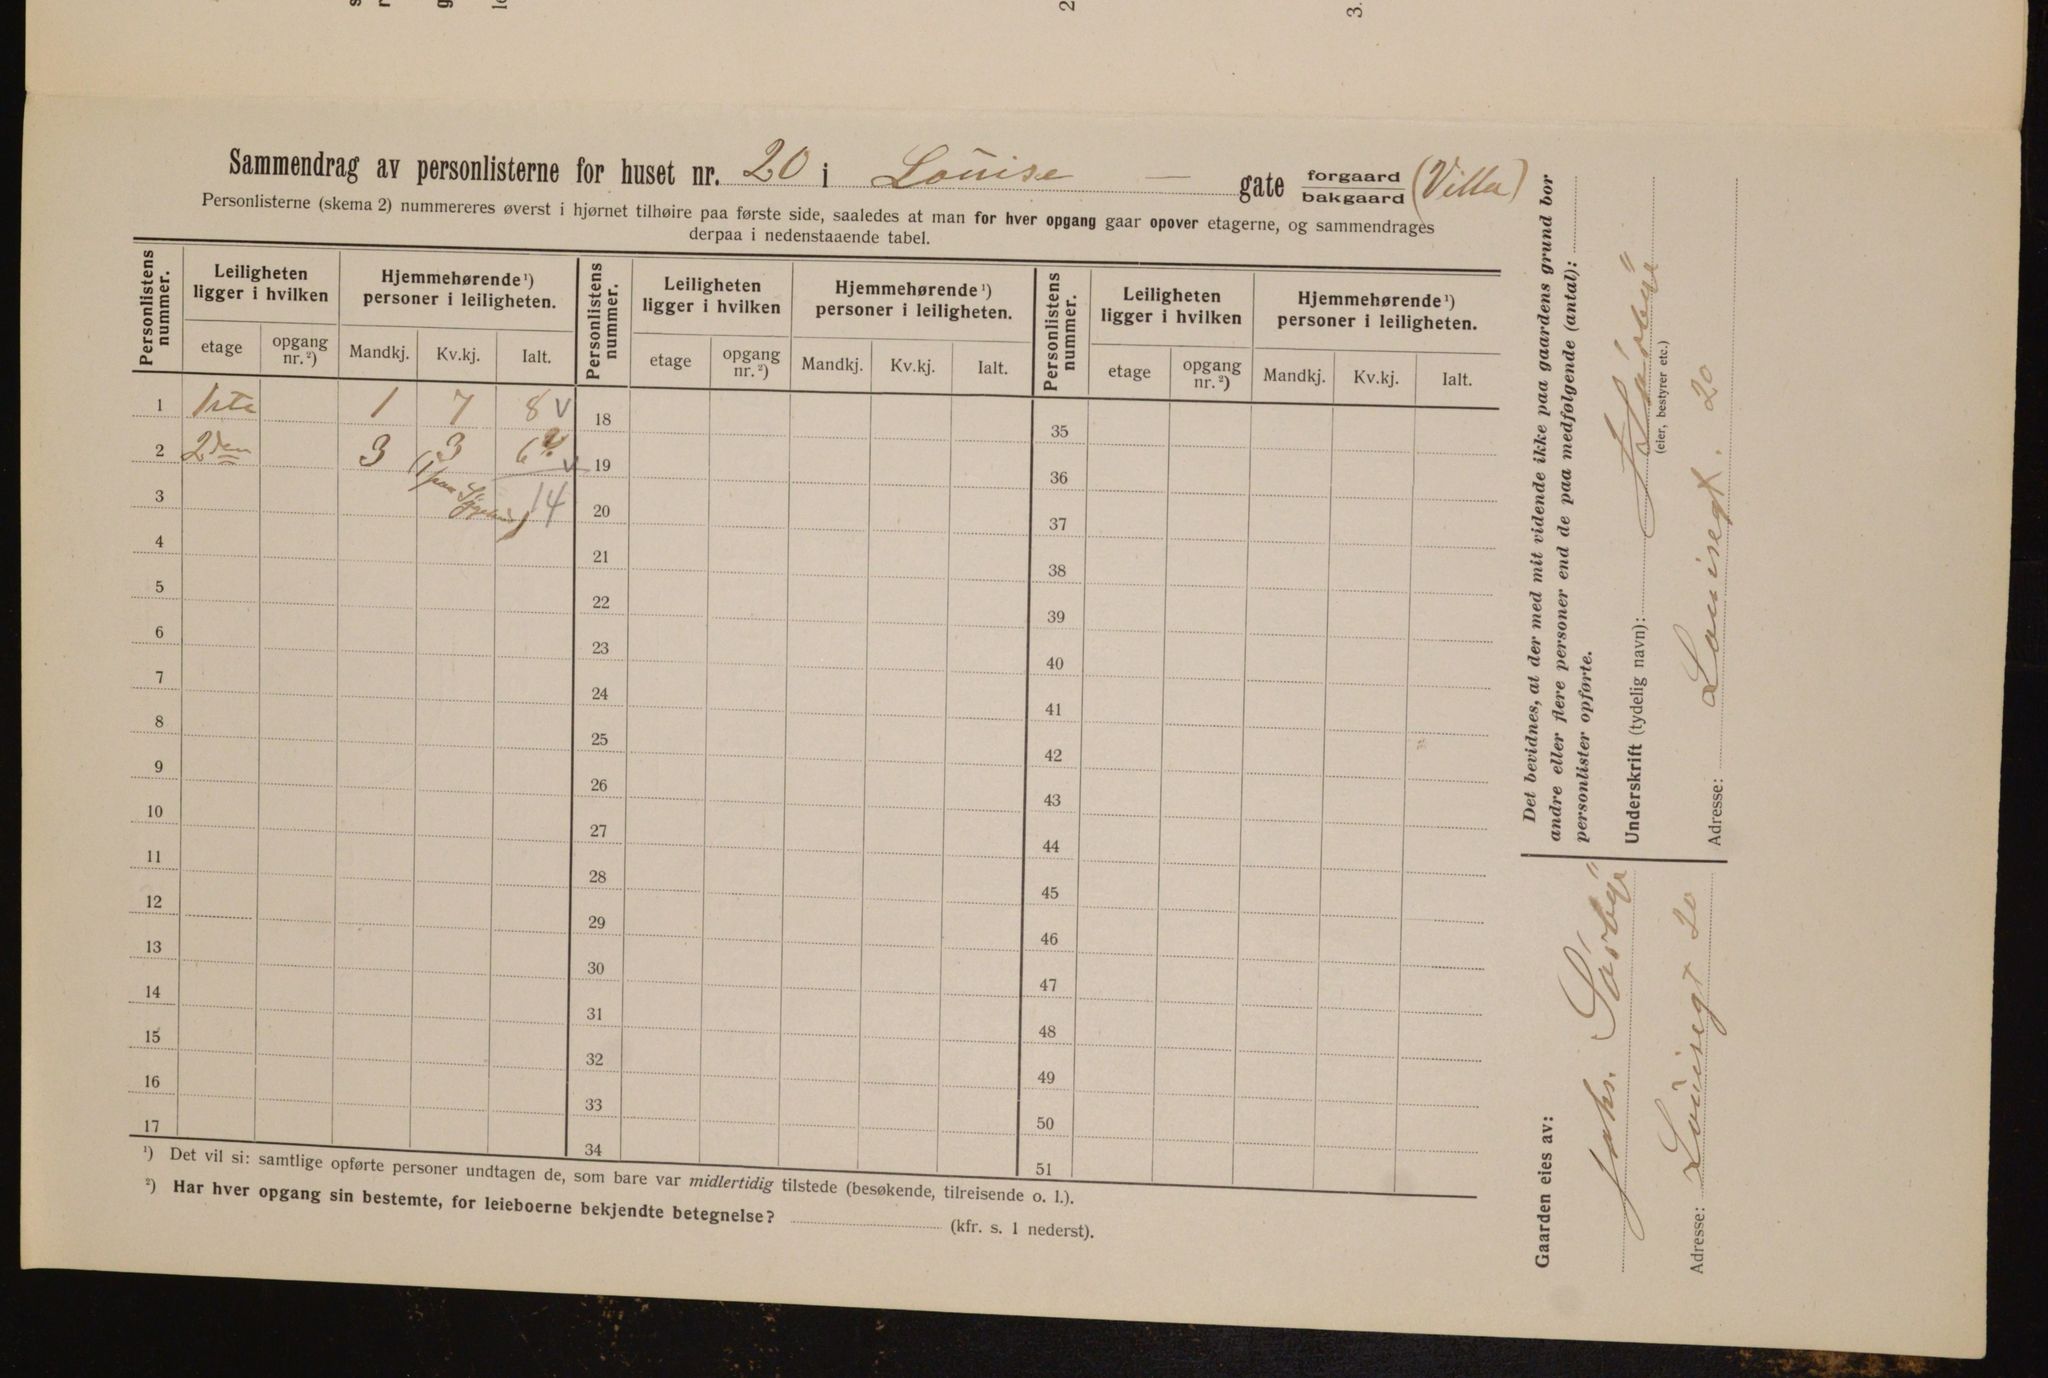 Sammendrag av personlisterne for huset nr. 20 i Louise — gate forgaard bakgaard (Villa)
Personlisterne (skema 2) nummereres øverst i hjørnet tilhøire paa første side, saaledes at man for hver opgang gaar opover etagerne, og sammendrages
derpaa i nedenstaaende tabel.
Personlistens nummer. Leiligheten ligger i hvilken Hjemmehørende ¹) personer i leiligheten. Personlistens nummer. Leiligheten ligger i hvilken Hjemmehørende ¹) personer i leiligheten. Personlistens nummer. Leiligheten ligger i hvilken Hjemmehørende ¹) personer i leiligheten.
etage opgang nr. ²) Mandkj. Kv.kj. Ialt. etage opgang nr. ²) Mandkj. Kv.kj. Ialt. etage opgang nr. ²) Mandkj. Kv.kj. Ialt.
1 1ste 1 7 8 V 18 35
2 2den 3 3 6 V 19 36
3 14 20 37
4 21 38
5 22 39
6 23 40
7 24 41
8 25 42
9 26 43
10 27 44
11 28 45
12 29 46
13 30 47
14 31 48
15 32 49
16 33 50
17 34 51
¹) Det vil si: samtlige opførte personer undtagen de, som bare var midlertidig tilstede (besøkende, tilreisende o. l.).
²) Har hver opgang sin bestemte, for leieboerne bekjendte betegnelse? (kfr. s. 1 nederst).
Det bevidnes, at der med mit vidende ikke paa gaardens grund bor
andre eller flere personer end de paa medfølgende (antal):
personlister opførte.
Underskrift (tydelig navn):
(eier, bestyrer etc.)
Adresse: Louisegt. 20
Gaarden eies av:
Johs.
Adresse: Louisegt 20